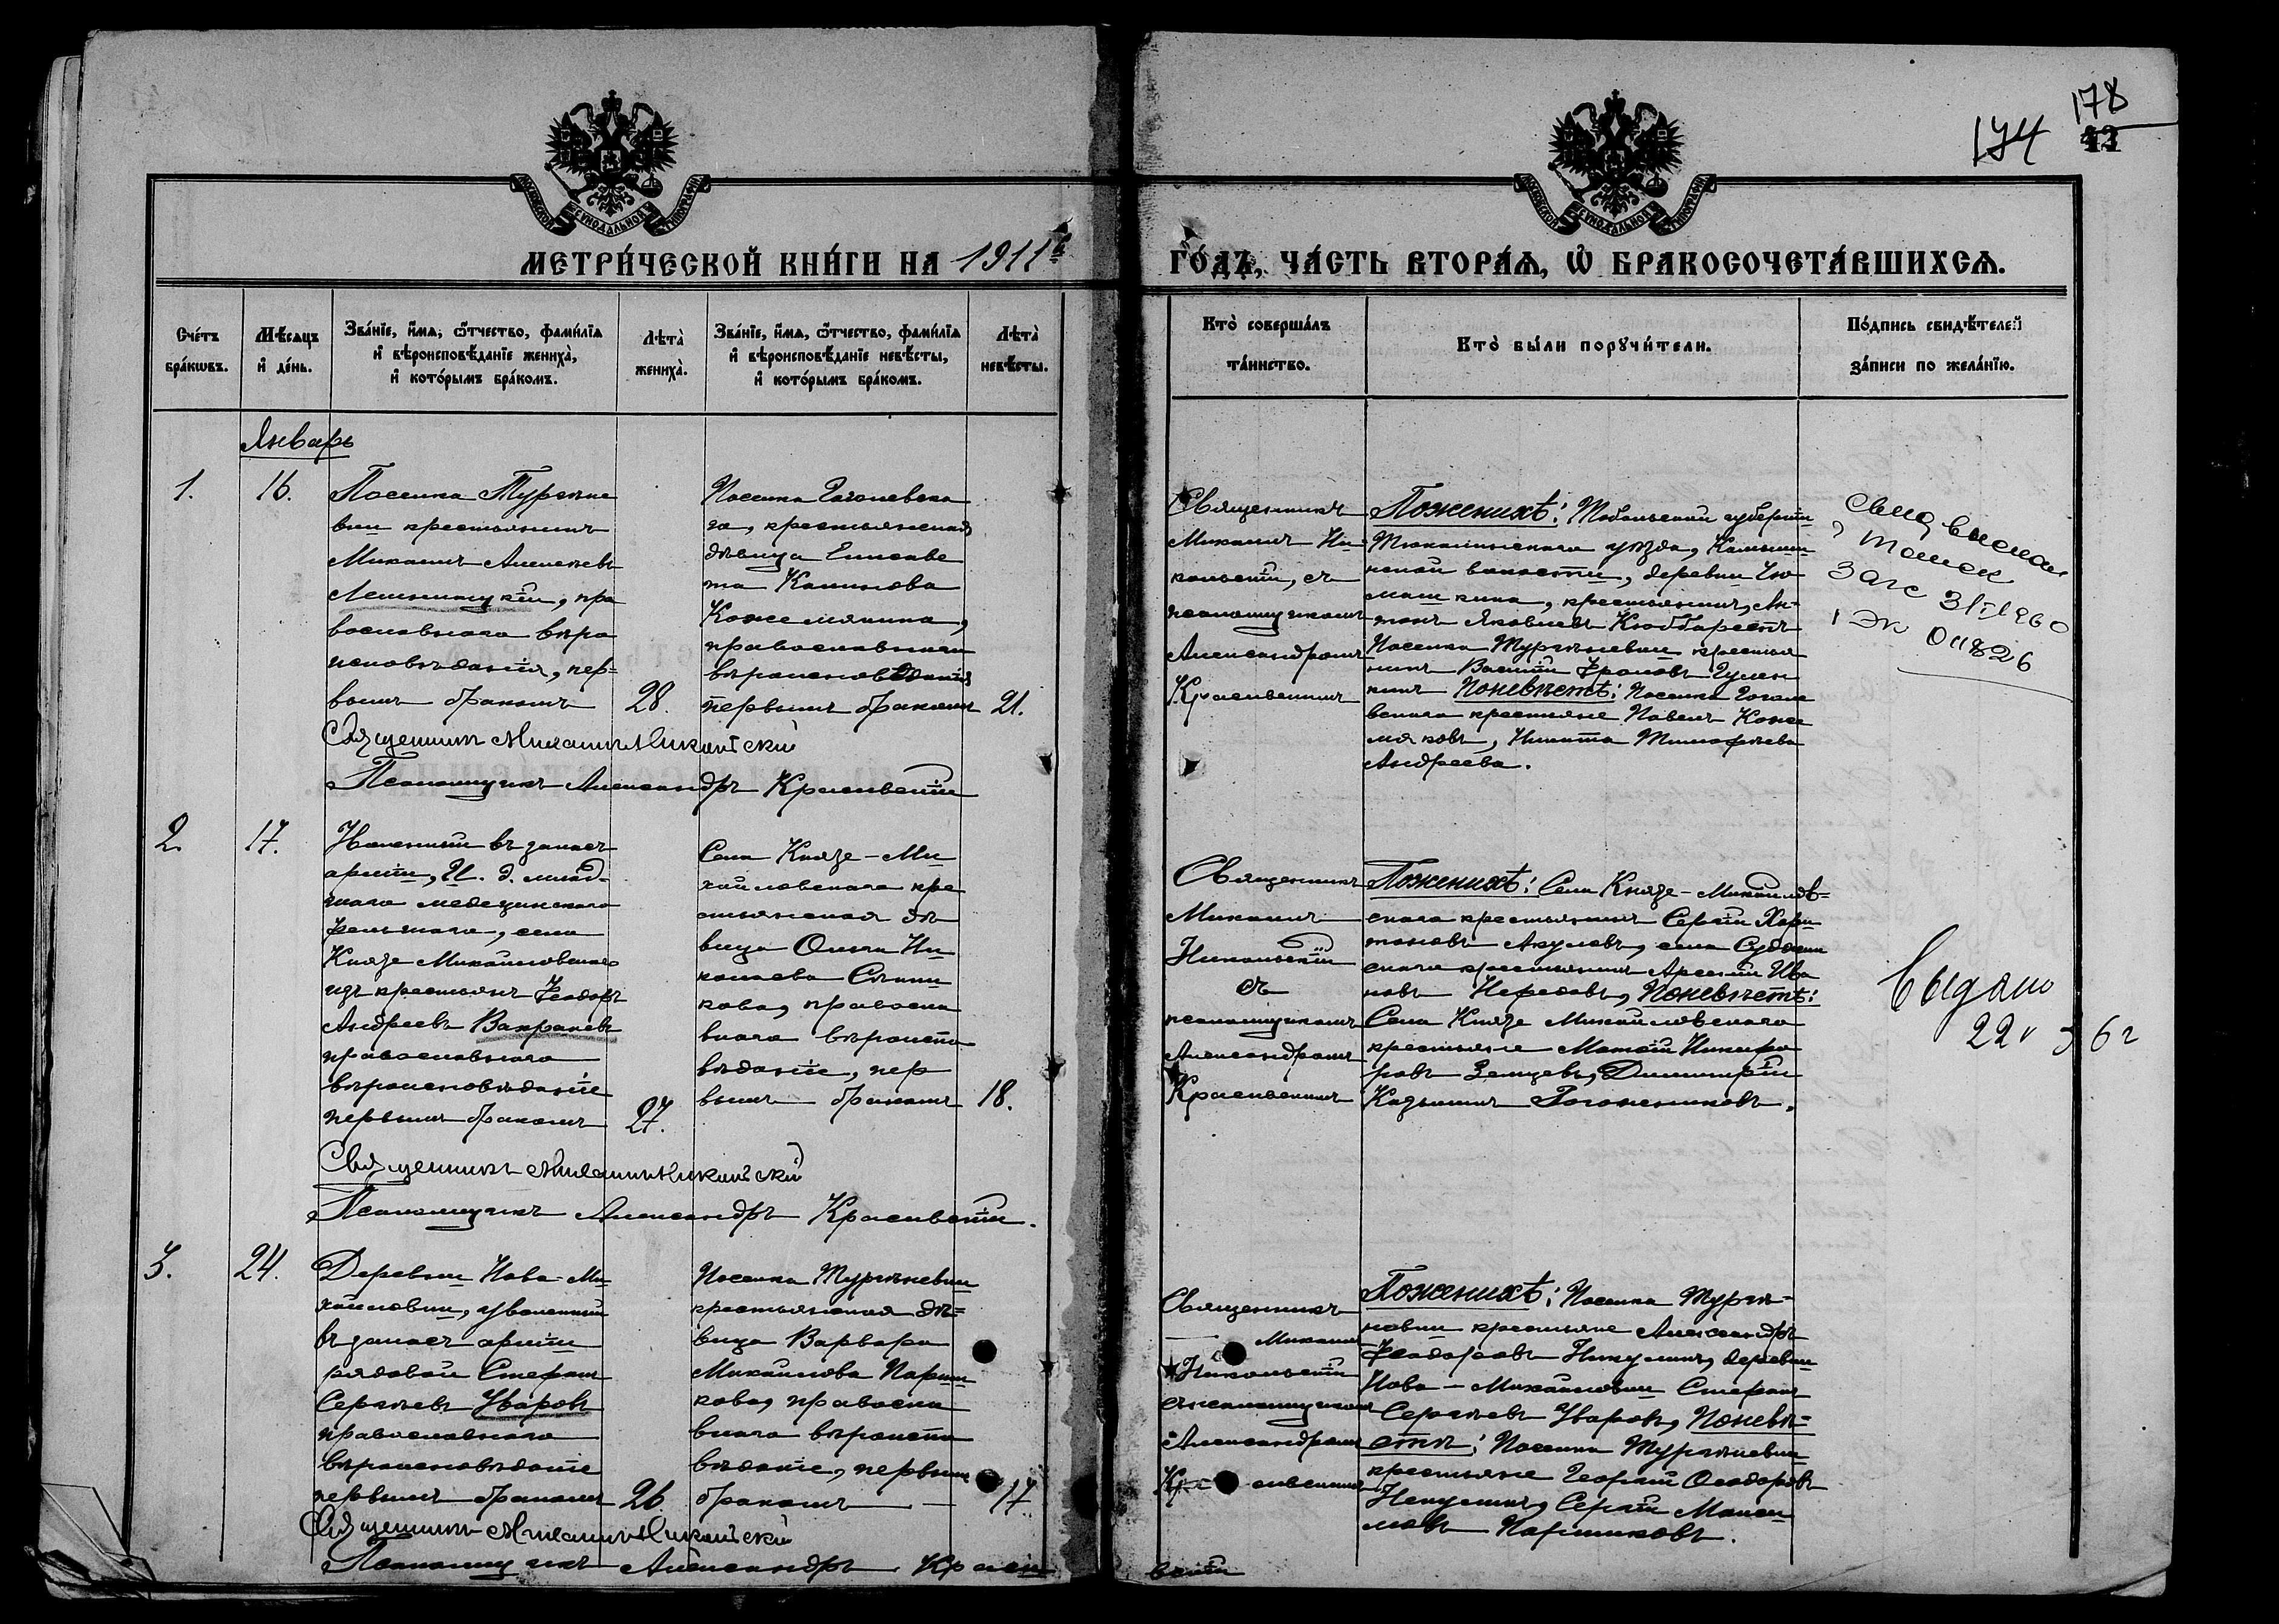 174
178
МЕТРИ́ЧЕСКОЙ КНИ́ГИ НА 1911й
ГО́ДЪ, ЧА́СТЬ ВТОРА́Ѧ, Ѡ БРАКОСОЧЕТА́ВШИХСѦ.
Сче́тъ
бра́кѡвъ.
Мѣ́сѧцъ
и҆ де́нь.
Зва́нїе, и҆́мѧ, ѻ҆́тчество, фами́лїѧ
и҆ вѣроисповѣ́данїе жениха̀,
и҆ кото́рымъ бра́комъ.
Лѣ́та
жениха̀.
Зва́нїе, и҆́мѧ, ѻ҆́тчество, фами́лїѧ
и҆ вѣроисповѣ́данїе невѣ́сты,
и҆ кото́рымъ бра́комъ.
Лѣ́та
невѣ́сты.
Кто̀ соверша́лъ
та́инство.
Кто̀ бы́ли порꙋчи́тели.
По́дпись свидѣ́телей
за́писи по жела́нїю.
Январь
1.
16.
Поселка Тургене
вки крестьянинъ
Михаилъ Алексѣевъ
пра
вославнаго вѣро
исповѣданія, пер-
вымъ бракомъ
28.
Поселка Гоголевска
го, крестьянская
дѣвица Елисаве
та Климова
Кожемякина,
православнаго
вѣроисповѣданія
первымъ бракомъ
21.
Священникъ
Михаилъ Ни-
кольскій, съ
псаломщикомъ
Александромъ
Красивскимъ
По женихѣ: Тобольской губерніи
Тюкалинскаго уѣзда,
волости, деревни
крестьянинъ, Ан-
тонъ Яковлевъ
Поселка Тургеневки крестья
нинъ Василій Фроловъ
По невѣстѣ: Поселка Гоголе
вскаго крестьяне Павелъ Коже
мяковъ, Никита Тимофѣевъ
Андреевъ.
Свид выслан
Томск
Загс
1960
Священникъ Михаилъ Никольскій
Псаломщикъ Александръ Красивскій
2.
17.
въ запасъ
арміи, И. д. млад-
шаго медецинскаго
фельшара, села
Князе Михайловскаго
изъ крестьянъ Феодоръ
Андреевъ Вахрамѣевъ
православнаго
вѣроисповѣданіе
первымъ бракомъ
27.
Села Князе-Ми
хайловскаго кре
стьянская дѣ
вица Ольга Ни
колаева
кова, правосла
внаго вѣроиспо
вѣданіе, пер
вымъ бракомъ
18.
Священникъ
Михаилъ
Никольскій
съ
псаломщикомъ
Александромъ
Красивскимъ
По женихѣ: Села Князе-Михайлов-
скаго крестьянинъ Сергій Хари
тоновъ Акуловъ, села
скаго крестьянинъ Арсеній Ива
новъ Нередовъ, По невѣстѣ:
Села Князе Михайловскаго
крестьяне Матвѣй Никифо
ровъ Земцевъ, Димитрій
Кадьминъ
Выдано
22
Священникъ Михаилъ Никольскій
Псаломщикъ Александръ Красивскій.
3.
24.
Деревни Ново-Ми
хайловки, уволенный
въ запасъ арміи
рядовой Стефанъ
Сергѣевъ Уваровъ
православнаго
вѣроисповѣданіе
первымъ бракомъ
26.
Поселка Тургеневки
крестьянская дѣ=
вица Варвара
Михайлова Парши
кова, правосла
внаго вѣроиспо
вѣданіе, первымъ
бракомъ —
17
Священникъ
Михаилъ
Никольскій
съ псаломщикомъ
Александромъ
Красивскимъ
По женихѣ: Поселка Турге-
невки крестьяне Александръ
Феодоровъ Никулинъ, деревни
Ново-Михайловки Стефанъ
Сергѣевъ Уваровъ, По невѣ=
стѣ: Поселка Тургеневки
крестьяне Георгій Феодоровъ
Никулинъ, Сергій Макси
мовъ Паршиковъ.
Священникъ Михаилъ Никольскій
Псаломщикъ Александръ Краси
вскій